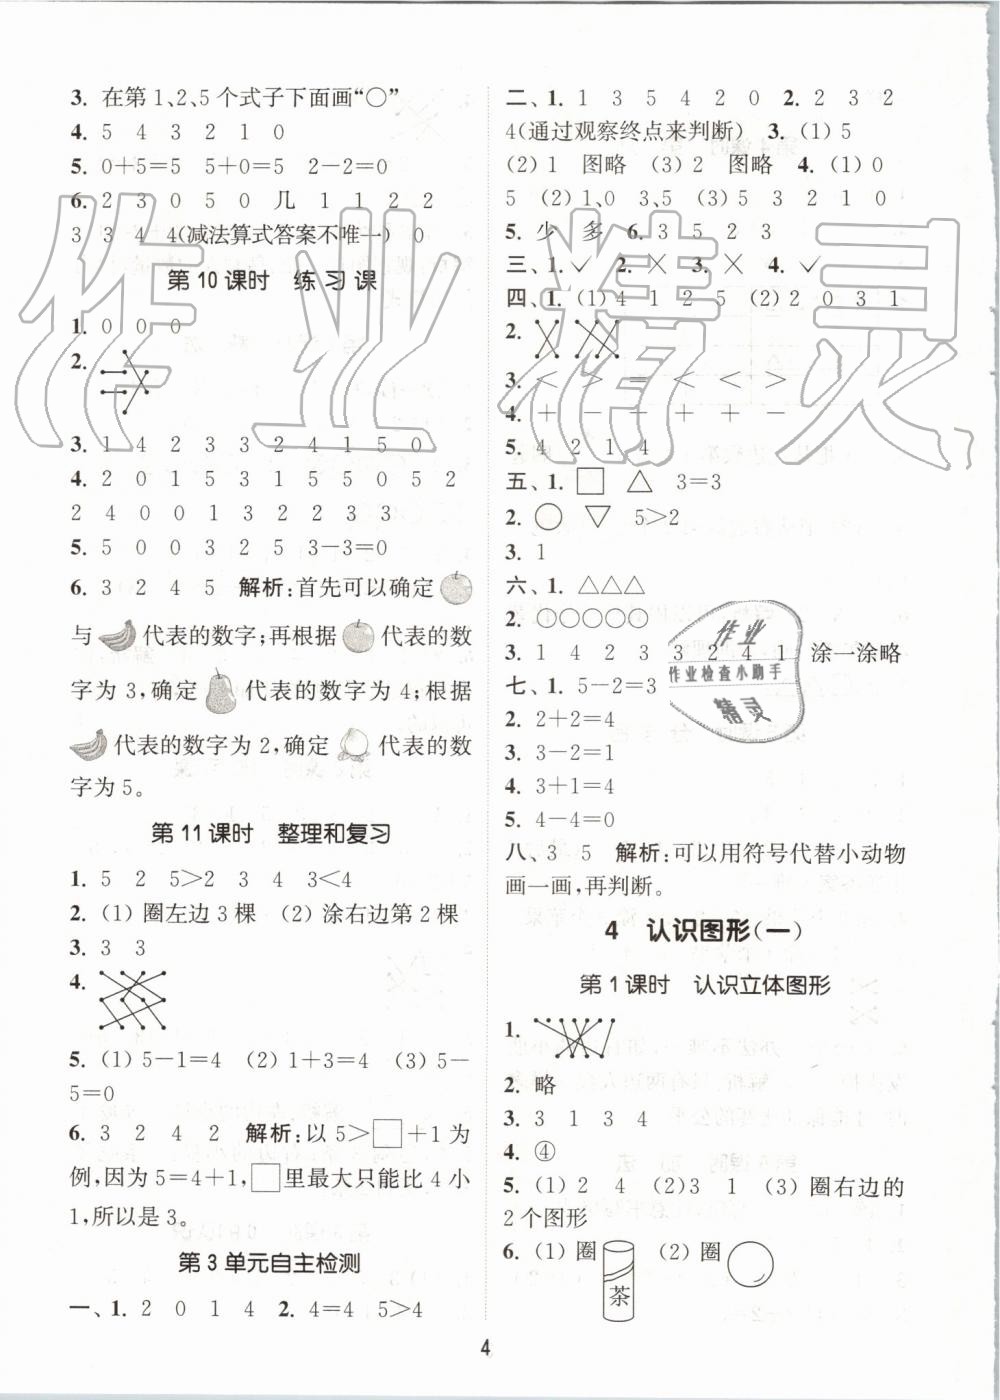 3. 在第1、2、5个式子下面画“○”
4. 5 4 3 2 1 0
5. 0+5=5 5+0=5 2-2=0
6. 2 3 0 5 0 几 1 1 2 2
3 3 4 4(减法算式答案不唯一) 0
第10课时 练习课
1. 0 0 0
2.
3. 1 4 2 3 3 2 4 1 5 0
4. 2 0 1 5 3 1 5 5 0 5 2
2 4 0 0 1 3 2 2 3 3
5. 5 0 0 3 2 5 3-3=0
6. 3 2 4 5 解析:首先可以确定
与 代表的数字;再根据 代表的数
字为3,确定 代表的数字为4;根据
代表的数字为2,确定 代表的数
字为5。
第11课时 整理和复习
1. 5 2 5>2 3 4 3<4
2. (1) 圈左边3棵 (2) 涂右边第2棵
3. 3 3
4.
5. (1) 5-1=4 (2) 1+3=4 (3) 5-
5=0
6. 3 2 4 2 解析:以5>□+1为
例,因为5=4+1,□里最大只能比4小
1,所以是3。
第3单元自主检测
一、1. 2 0 1 4 2. 4=4 5>4
二、1. 1 3 5 4 2 0 2. 2 3 2
4(通过观察终点来判断) 3. (1) 5
(2) 1 图略 (3) 2 图略 4. (1) 0
5 (2) 1、0 3、5 (3) 5 3 2 1 0
5. 少 多 6. 3 5 2 3
三、1. ✓ 2. × 3. × 4. ✓
四、1. (1) 4 1 2 5 (2) 2 0 3 1
2.
3. < > = < < < >
4. + - - + + -
5. 4 2 1 4
五、1. □ △ 3=3
2. ○ ▽ 5>2
3. 1
六、1. △△△
2. ○○○○○
3. 1 4 2 3 3 2 4 1 涂一涂略
七、1. 5-2=3
2. 2+2=4
3. 3-2=1
4. 3+1=4
5. 4-4=0
八、3 5 解析:可以用符号代替小动物
画一画,再判断。
4 认识图形(一)
第1课时 认识立体图形
1.
2. 略
3. 3 1 3 4
4. ④
5. (1) 2 4 (2) 3 1 (3) 圈右边的
2个图形
6. (1) 圈 茶 (2) 圈
4
作业精灵
作业
作业检查小助手
精灵